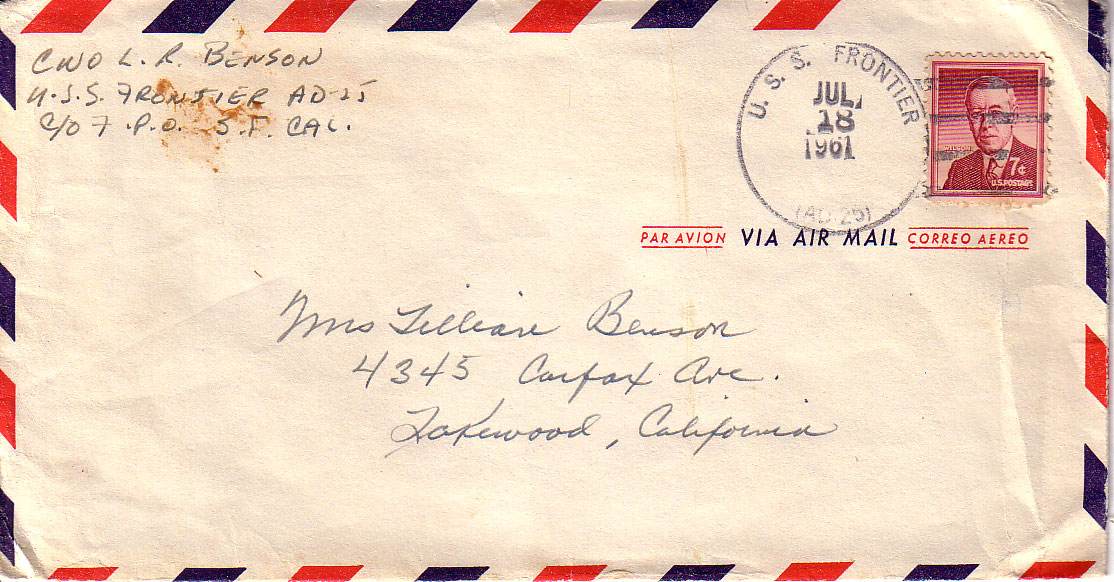 CWO L. R. BENSON
U.S.S. FRONTIER AD-25
C/O F.P.O. S.F. CAL.
U. S. S. FRONTIER
JUL
18
1961
(AD 25)
WILSON
7¢
U.S. POSTAGE
PAR AVION VIA AIR MAIL CORREO AEREO
Mrs Lillian Benson
4345 Carfax Ave.
Lakewood, California